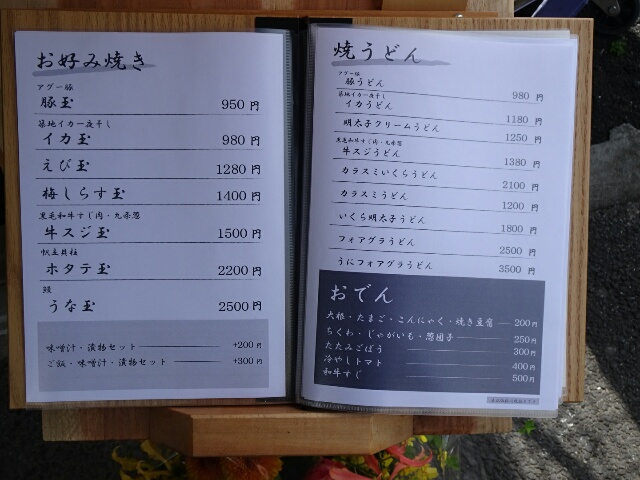 お好み焼き
アグー豚
豚玉 950円
築地イカ一夜干し
イカ玉 980円
えび玉 1280円
梅しらす玉 1400円
黒毛和牛すじ肉・九条葱
牛スジ玉 1500円
帆立貝柱
ホタテ玉 2200円
鰻
うな玉 2500円
味噌汁・漬物セット +200円
ご飯・味噌汁・漬物セット +300円
焼うどん
アグー豚
豚うどん 980円
築地イカ一夜干し
イカうどん 1180円
明太子クリームうどん 1250円
黒毛和牛すじ肉・九条葱
牛スジうどん 1380円
カラスミいくらうどん 2100円
カラスミうどん 1200円
いくら明太子うどん 1800円
フォアグラうどん 2500円
うにフォアグラうどん 3500円
おでん
大根・たまご・こんにゃく・焼き豆腐 200円
ちくわ・じゃがいも・葱団子 250円
たたみごぼう 300円
冷やしトマト 400円
和牛すじ 500円